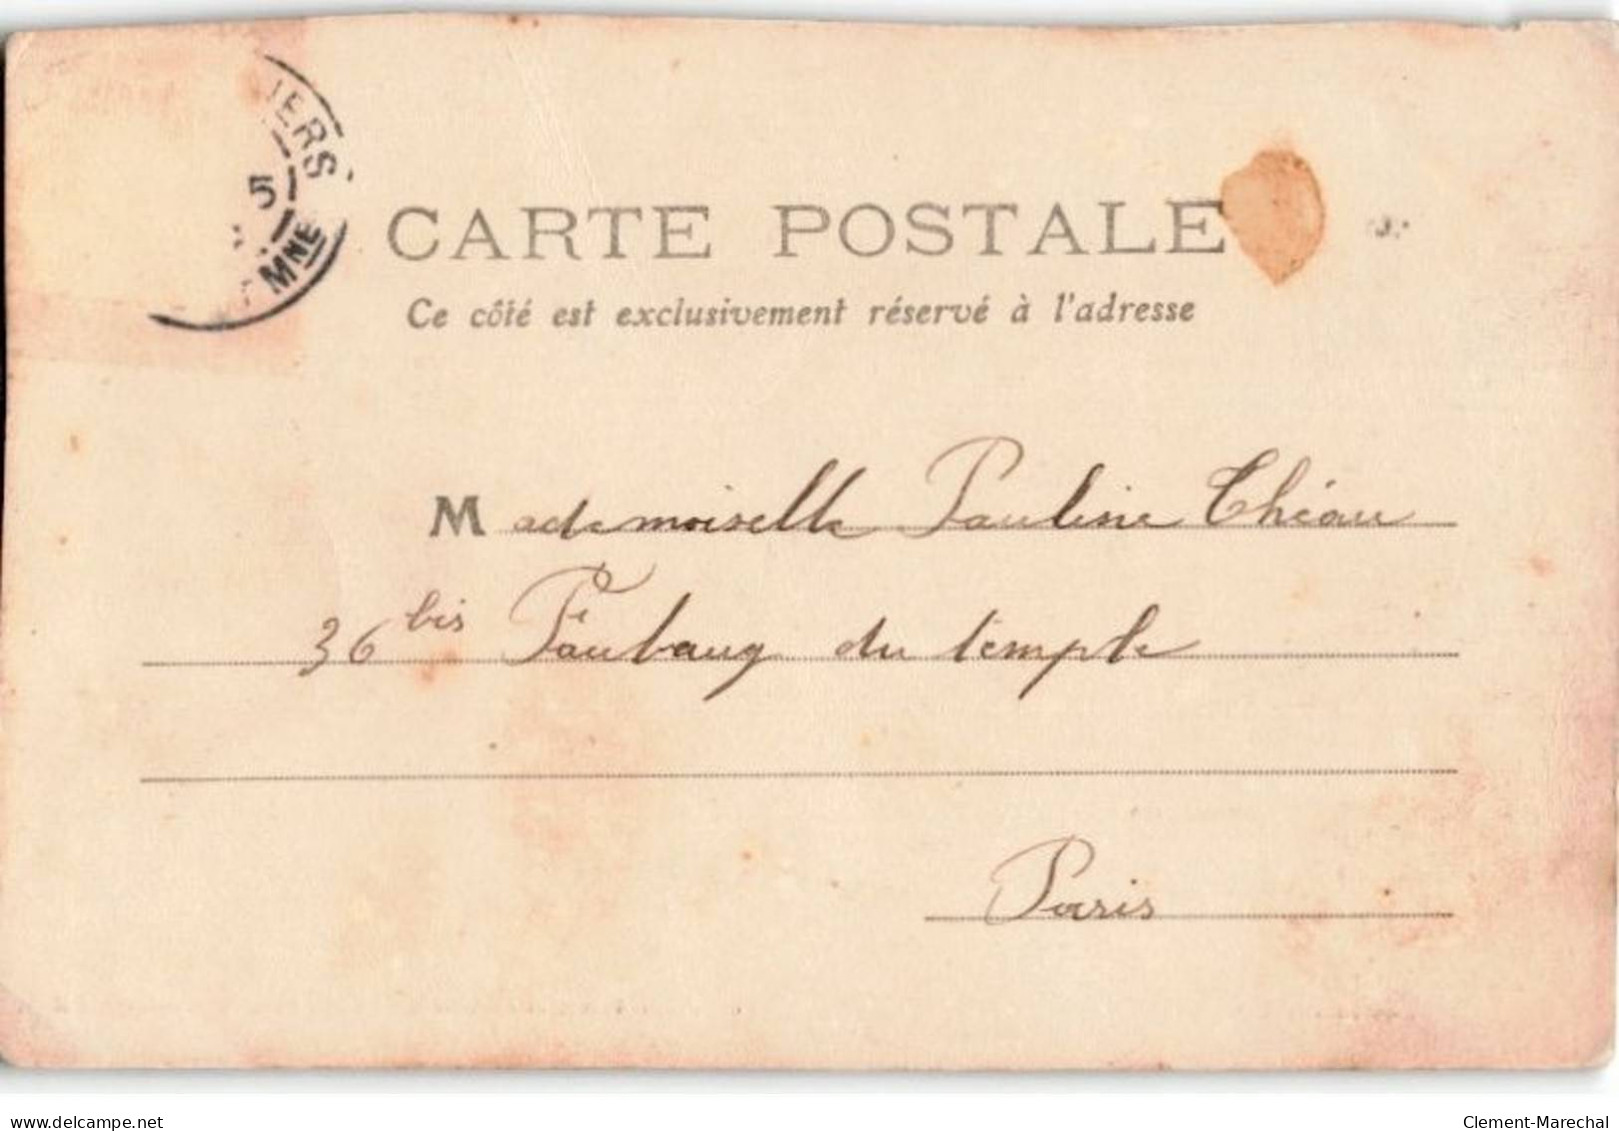 IERS
5
MNE
CARTE POSTALE
Ce côté est exclusivement réservé à l'adresse
Mademoiselle Pauline Théau
36 bis Faubaug du temple
Paris
delcampe.net
Clement-Marechal